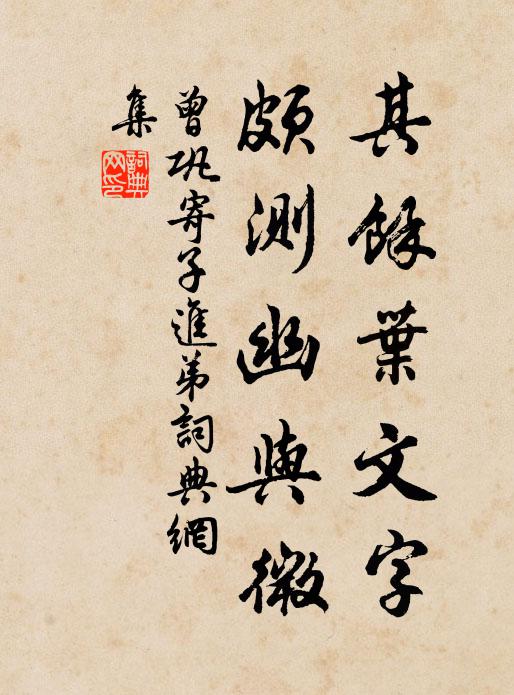 其餘業文字
頗測幽與微
曾鞏寄子進弟詞典網
集
詞典網印